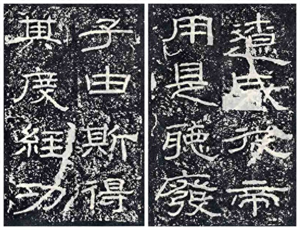 遼咸從帝
用是聽發
子由斯得
其度經功